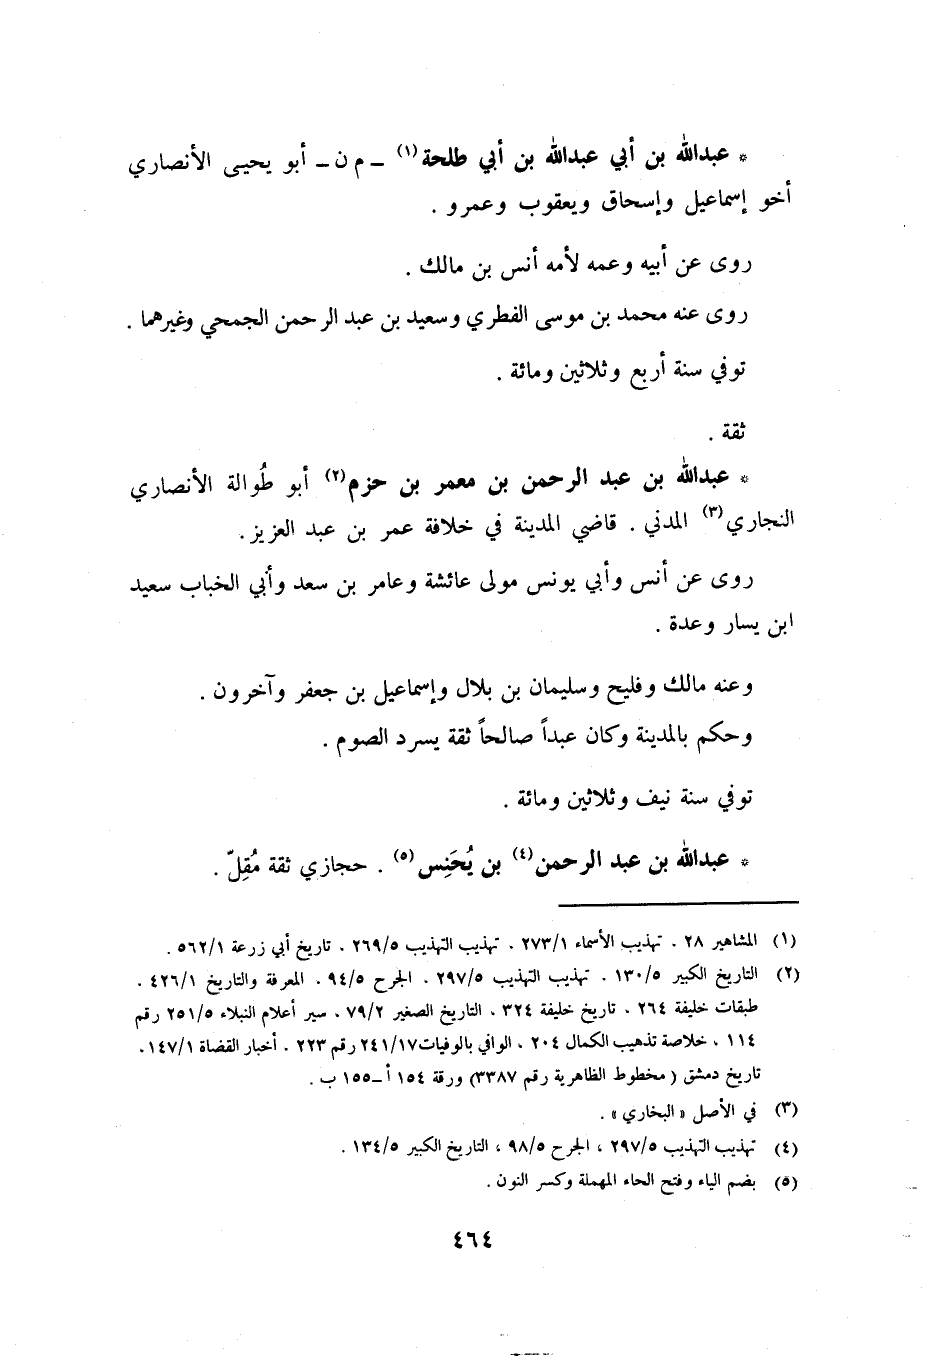 * عبدالله بن أبي عبدالله بن أبي طلحة(١) ــ م ن ــ أبو يحيى الأنصاري
أخو إسماعيل وإسحاق ويعقوب وعمرو .
روى عن أبيه وعمه لأمه أنس بن مالك .
روى عنه محمد بن موسى الفطري وسعيد بن عبد الرحمن الجمحي وغيرهما .
توفي سنة أربع وثلاثين ومائة .
ثقة .
* عبدالله بن عبد الرحمن بن معمر بن حزم(٢) أبو طُوالة الأنصاري
النجاري(٣) المدني . قاضي المدينة في خلافة عمر بن عبد العزيز .
روى عن أنس وأبي يونس مولى عائشة وعامر بن سعد وأبي الحباب سعيد
ابن يسار وعدة .
وعنه مالك وفليح وسليمان بن بلال وإسماعيل بن جعفر وآخرون .
وحكم بالمدينة وكان عبداً صالحاً ثقة يسرد الصوم .
توفي سنة نيف وثلاثين ومائة .
* عبدالله بن عبد الرحمن(٤) بن يُحَنِس(٥) . حجازي ثقة مُقِلّ .
(١) المشاهير ٢٨ . تهذيب الأسماء ٢٧٣/١ . تهذيب التهذيب ٢٦٩/٥ . تاريخ أبي زرعة ٥٦٢/١ .
(٢) التاريخ الكبير ١٣٠/٥ . تهذيب التهذيب ٢٩٧/٥ . الجرح ٩٤/٥ . المعرفة والتاريخ ٤٢٦/١ .
طبقات خليفة ٢٦٤ . تاريخ خليفة ٣٢٤ . التاريخ الصغير ٧٩/٢ . سير أعلام النبلاء ٢٥١/٥ رقم
١١٤ . خلاصة تذهيب الكمال ٢٠٤ . الوافي بالوفيات ٢٤١/١٧ رقم ٢٢٣ . أخبار القضاة ١٤٧/١ .
تاريخ دمشق ( مخطوط الظاهرية رقم ٣٣٨٧) ورقة ١٥٤ أ ــ ١٥٥ ب .
(٣) في الأصل « البخاري » .
(٤) تهذيب التهذيب ٢٩٧/٥ ، الجرح ٩٨/٥ ، التاريخ الكبير ١٣٤/٥ .
(٥) بضم الياء وفتح الحاء المهملة وكسر النون .
٤٦٤